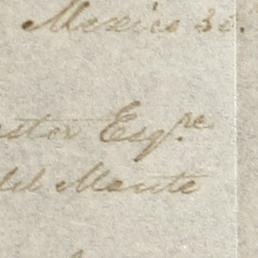 Mexico 30.
ester Esq.re
del Monte